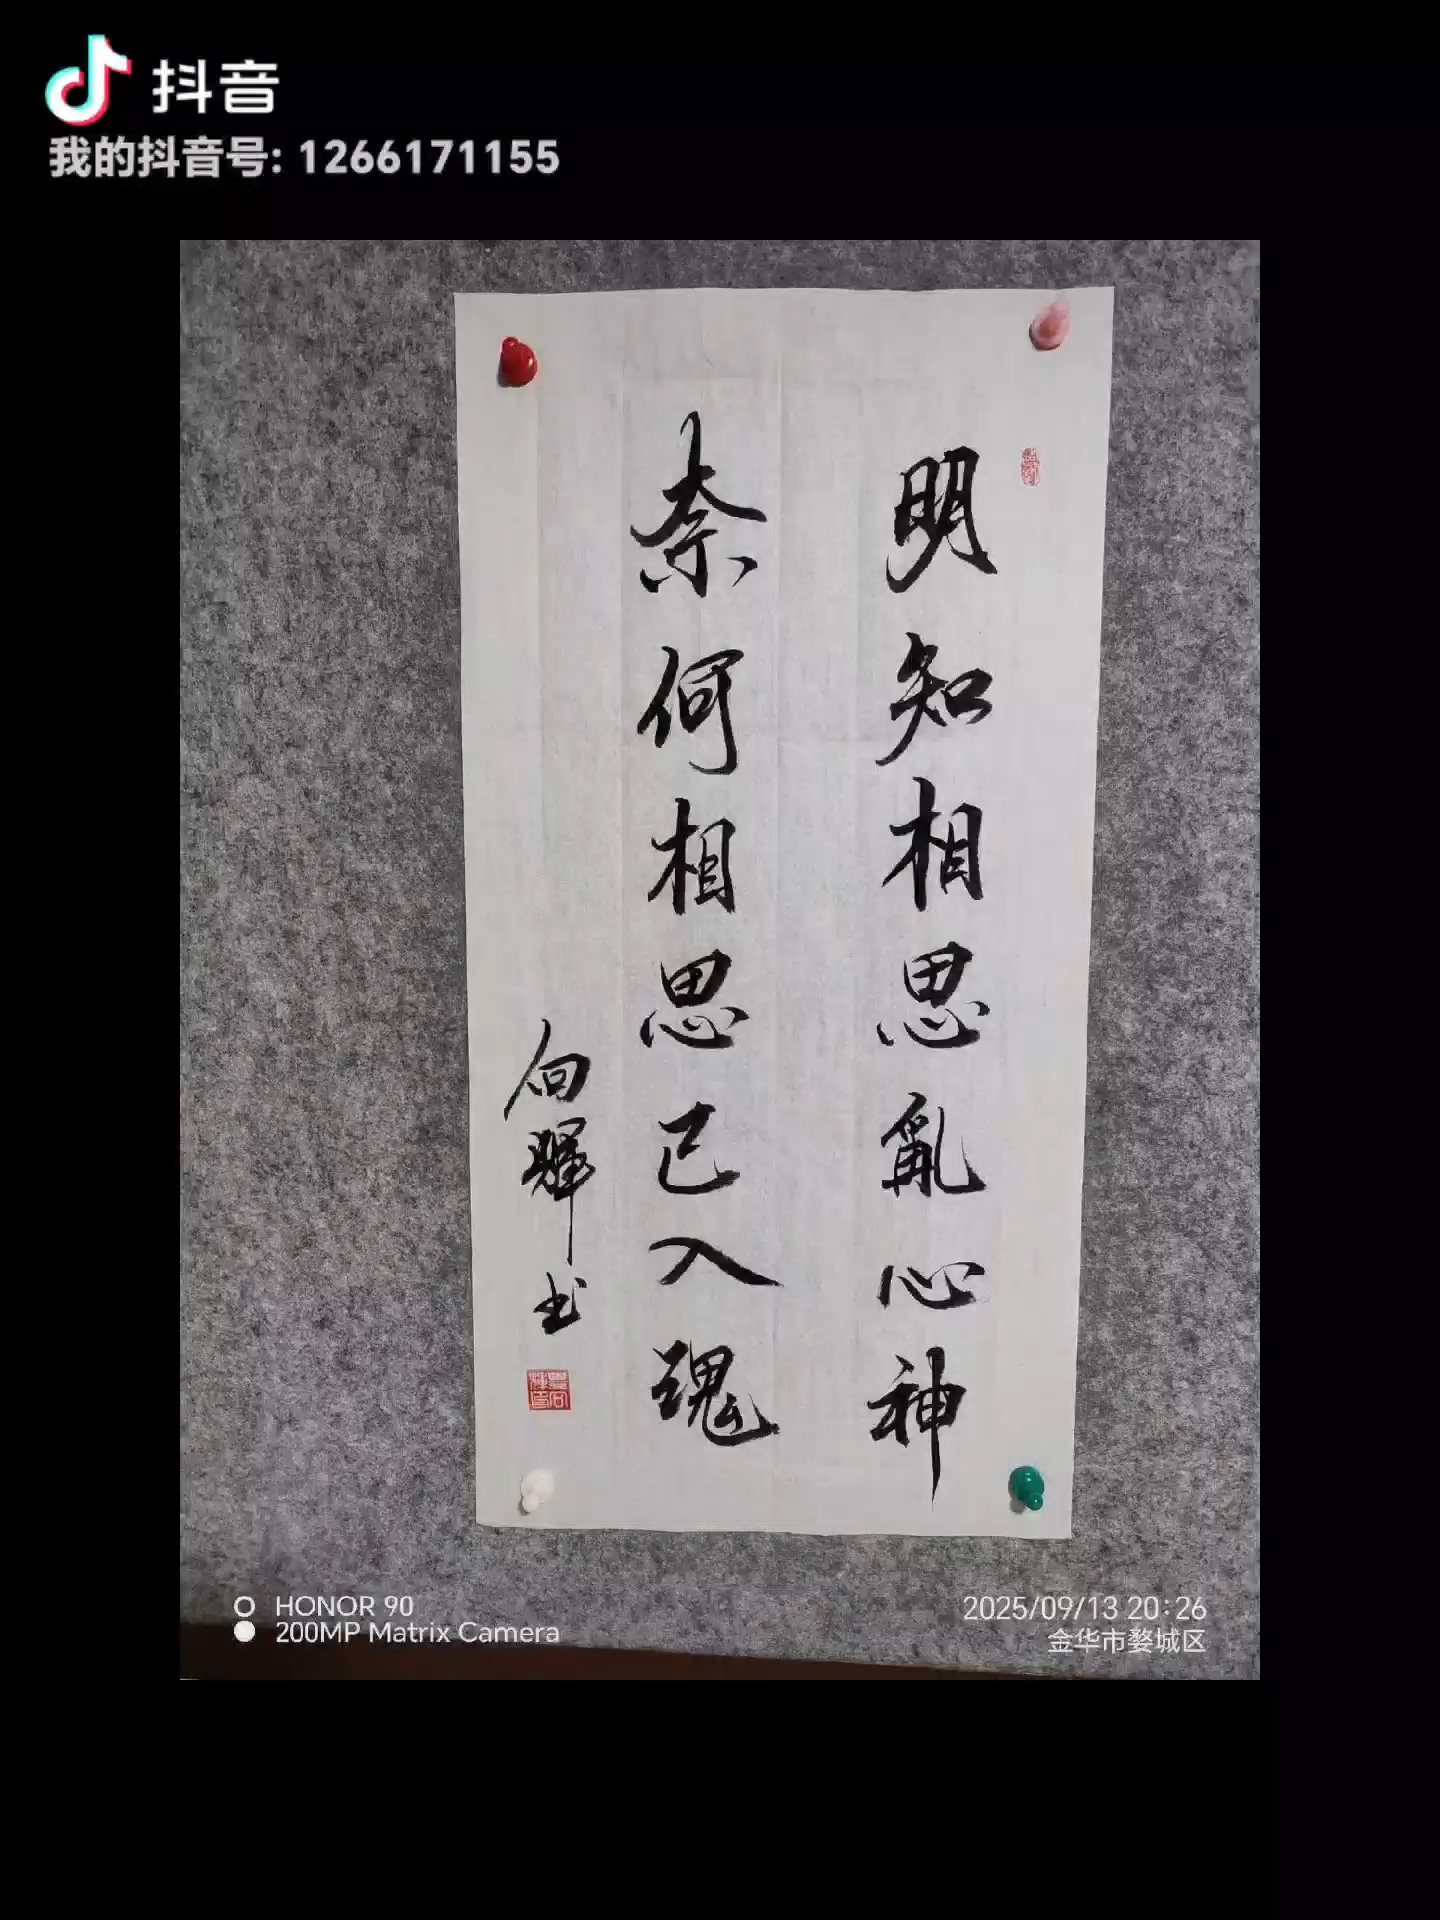 抖音
我的抖音号: 1266171155
明知相思亂心神
奈何相思已入魂
向輝书
HONOR 90
200MP Matrix Camera
2025/09/13 20:26
金华市婺城区